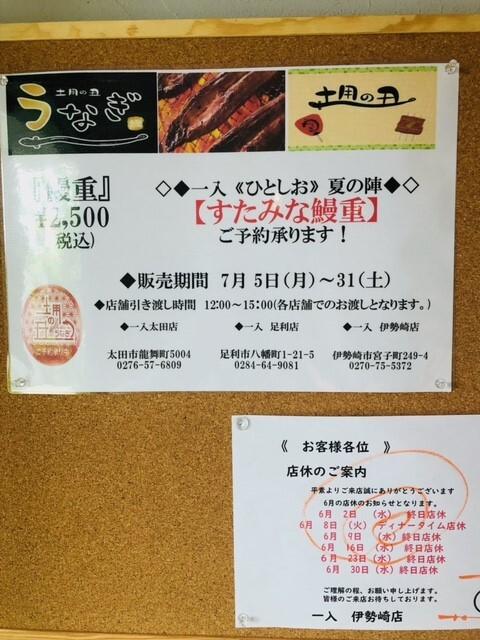 土用の丑
うなぎ
土用の丑
『鰻重』
¥2,500
(税込)
◇◆一入《ひとしお》夏の陣◆◇
【すたみな鰻重】
ご予約承ります！
◆販売期間 7月5日(月)～31(土)
◆店舗引き渡し時間 12:00～15:00(各店舗でのお渡しとなります。)
◆一入太田店 ◆一入 足利店 ◆一入 伊勢崎店
太田市龍舞町5004 足利市八幡町1-21-5 伊勢崎市宮子町249-4
0276-57-6809 0284-64-9081 0270-75-5372
土用の
ご予約承り中
《 お客様各位 》
店休のご案内
平素よりご来店誠にありがとうございます
6月の店休のお知らせとなります。
6月 2日 (水) 終日店休
6月 8日 (火) ディナータイム店休
6月 9日 (水) 終日店休
6月 16日 (水) 終日店休
6月 23日 (水) 終日店休
6月 30日 (水) 終日店休
ご理解の程、お願い申し上げます。
皆様のご来店お待ちしております。
一入 伊勢崎店